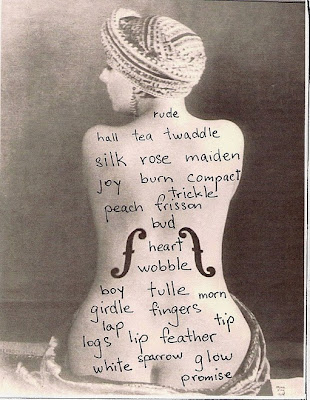 rude
hall tea twaddle
silk rose maiden
joy burn compact
trickle
peach frisson
bud
heart
wobble
boy tulle morn
girdle fingers
lap tip
logs lip feather
white sparrow glow
promise